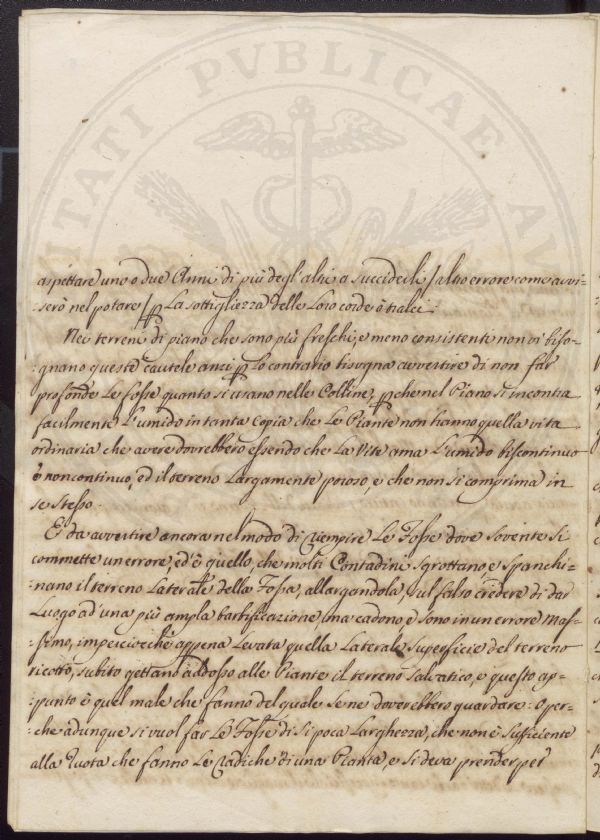 aspettare uno o due Anni di più degl'altri a succiderli / altro errore come avvi-
:serò nel potare / p la sottigliezza delle Loro corde ò tralci.
Nei terreni di piano che sono più freschi, e meno consistenti non vi biso-
:gnano queste cautele anzi p Lo contrario bisogna avvertire di non far
profonde Le fosse quanto si usano nelle Colline, pche nel Piano si incontra
facilmente L'umido in tanta copia che Le Piante non hanno quella vita
ordinaria che avere dovrebbero essendo che La Vite ama L'umido discontinuo
ò non continuo, ed il terreno Largamente poroso, e che non si comprima in
se stesso.
E' da avvertire ancora nel modo di riempire Le Fosse dove sovente si
commette un errore, ed è quello, che molti Contadini sgrottano e spanchi-
:nano il terreno Laterale della Fossa, allargandola, sul falso credere di dar
Luogo ad una più ampla barbificazione, ma cadono, e sono in un errore Mas-
:simo, imperciocchè appena Levata quella Laterale superficie del terreno
ricotto, subito gettano addosso alle Piante il terreno salvatico, e questo ap-
:punto è quel male che fanno del quale se ne doverebbero guardare: Oper-
:che adunque si vuol far Le Fosse di sì poca Larghezza, che non è sufficiente
alla Ruota che fanno Le Radiche di una Pianta, e si deva prender per
PVBLICAE